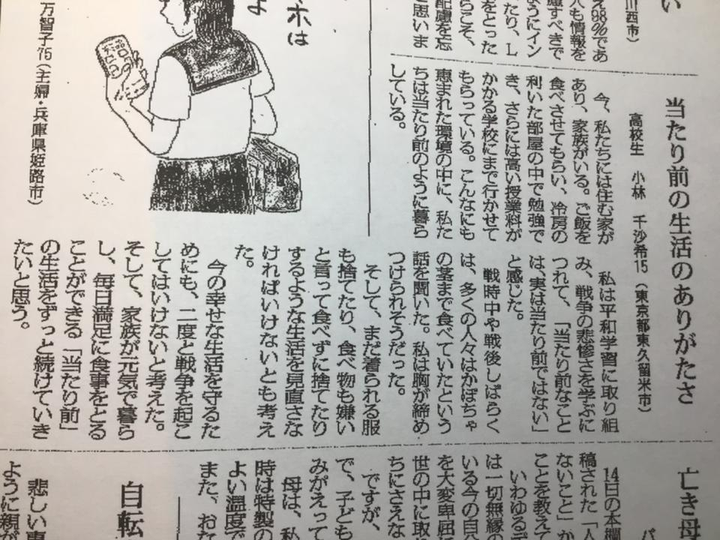 い
川西市）
え98％であ
人も情報を
識すべきで
ようにイン
たり、L
をとった
らこそ、
配慮を忘
と思いま
当たり前の生活のありがたさ
高校生　小林　千沙希15（東京都東久留米市）
今、私たちには住む家が
あり、家族がいる。ご飯を
食べさせてもらい、冷房の
利いた部屋の中で勉強で
き、さらには高い授業料が
かかる学校にまで行かせて
もらっている。こんなにも
恵まれた環境の中に、私た
ちは当たり前のように暮ら
している。
私は平和学習に取り組
み、戦争の悲惨さを学ぶに
つれて、「当たり前なこと
は、実は当たり前ではない」
と感じた。
戦時中や戦後しばらく
は、多くの人々はかぼちゃ
の茎まで食べていたという
話を聞いた。私は胸が締め
つけられそうだった。
そして、まだ着られる服
も捨てたり、食べ物も嫌い
と言って食べずに捨てたり
するような生活を見直さな
ければいけないとも考え
た。
今の幸せな生活を守るた
めにも、二度と戦争を起こ
してはいけないと考えた。
そして、家族が元気で暮ら
し、毎日満足に食事をとる
ことができる「当たり前」
の生活をずっと続けていき
たいと思う。
ホは
よ
万智子75（主婦・兵庫県姫路市）
亡き母
バ
14日の本欄
稿された「人
ないこと」か
ことを教えて
いわゆるデ
は一切無縁の
いる今の自分
を大変卑屈
世の中に取り
ちにさえな
ですが、
で、子ども
みがえって
母は、私
時は特製の
よい温度で
また、おな
自転
悲しい事
ように親が